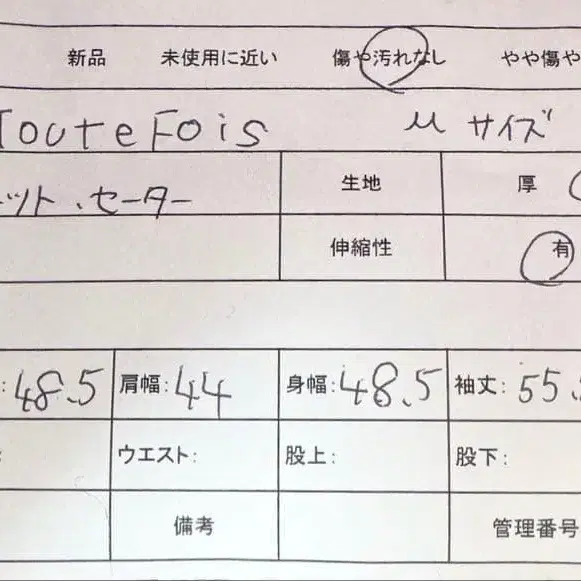 新品 未使用に近い 傷や汚れなし やや傷や
TouteFois Mサイズ
ット、セーター 生地 厚
伸縮性 有
:48.5 肩幅:44 身幅:48.5 袖丈:55.
: ウエスト: 股上: 股下:
備考 管理番号